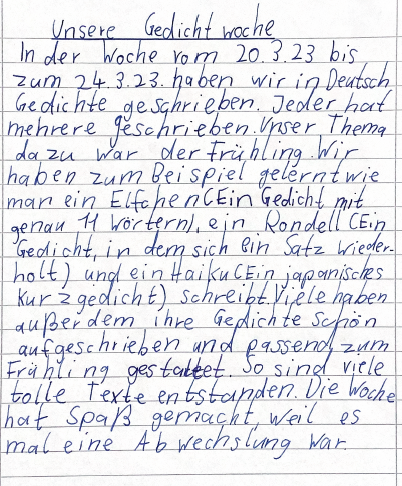 Unsere Gedichtwoche
In der Woche vom 20.3.23 bis
zum 24.3.23. haben wir in Deutsch
Gedichte geschrieben. Jeder hat
mehrere geschrieben. Unser Thema
dazu war der Frühling. Wir
haben zum Beispiel gelernt wie
man ein Elfchen (Ein Gedicht mit
genau 11 Wörtern), ein Rondell (Ein
Gedicht, in dem sich ein Satz wieder-
holt) und ein Haiku (Ein japanisches
Kurzgedicht) schreibt. Viele haben
außerdem ihre Gedichte schön
aufgeschrieben und passend zum
Frühling gestaltet. So sind viele
tolle Texte entstanden. Die Woche
hat Spaß gemacht, weil es
mal eine Abwechslung war.